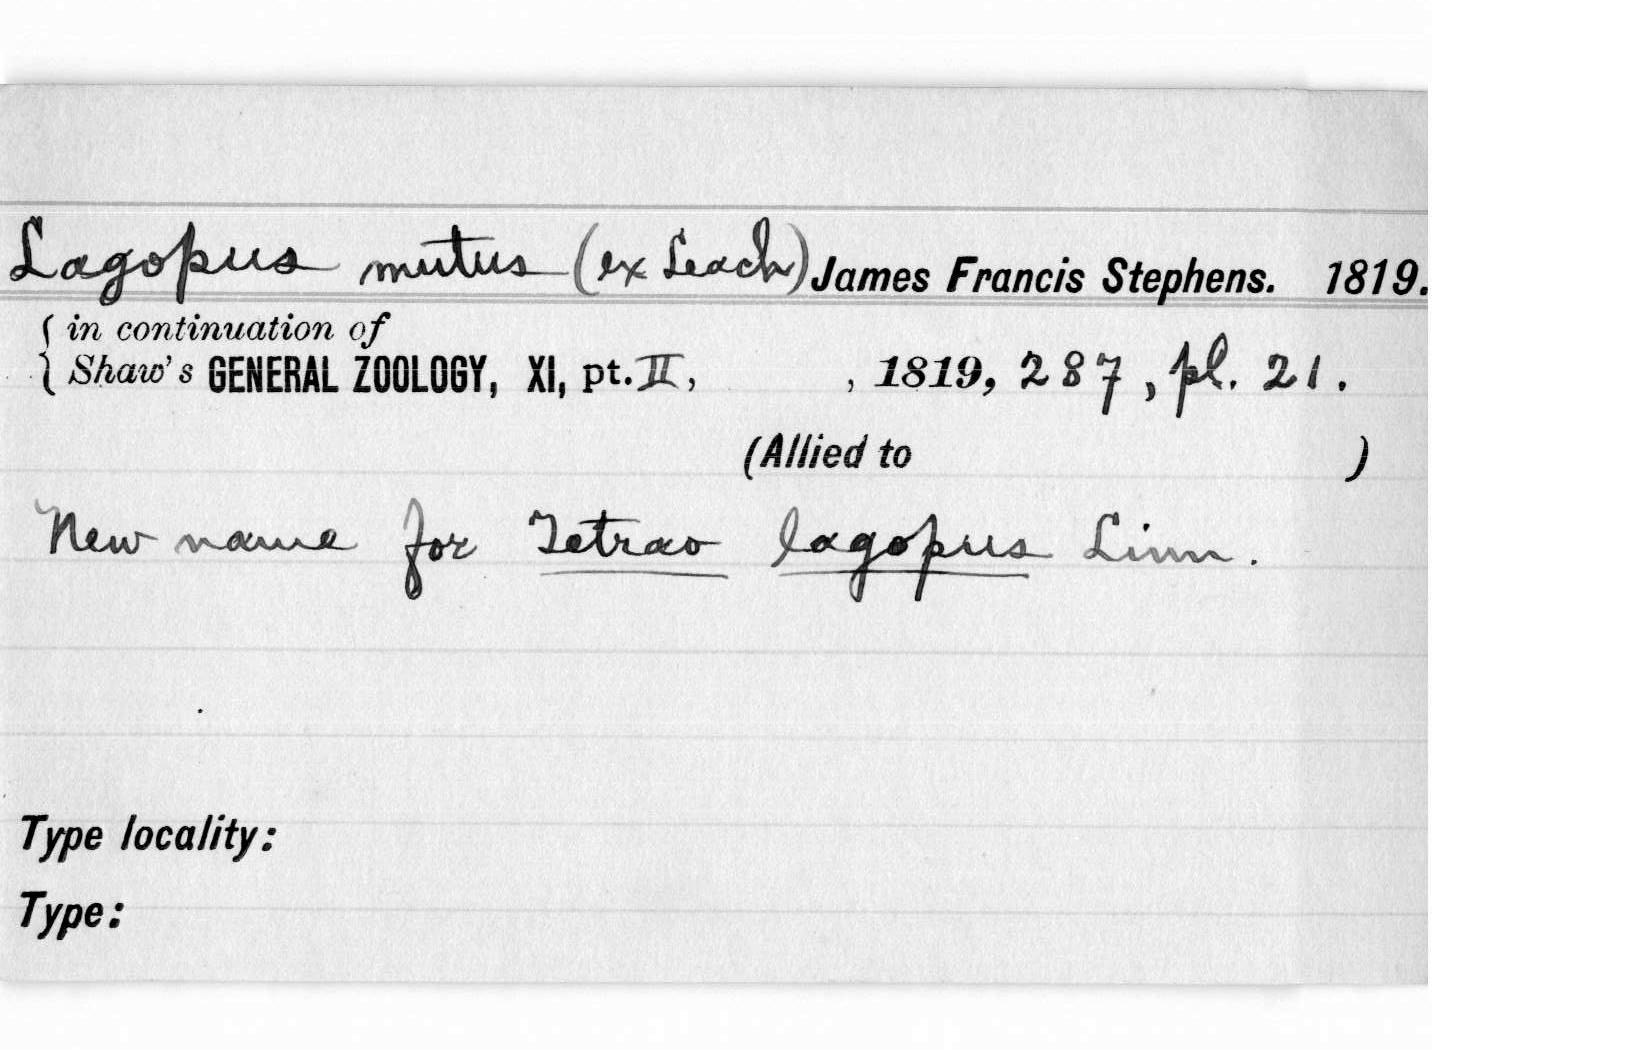 Lagopus mutus (ex Leach) James Francis Stephens. 1819.
in continuation of
Shaw's GENERAL ZOOLOGY, XI, pt. II, , 1819, 287, pl. 21.
(Allied to )
New name for Tetrao lagopus Linn.
Type locality:
Type: